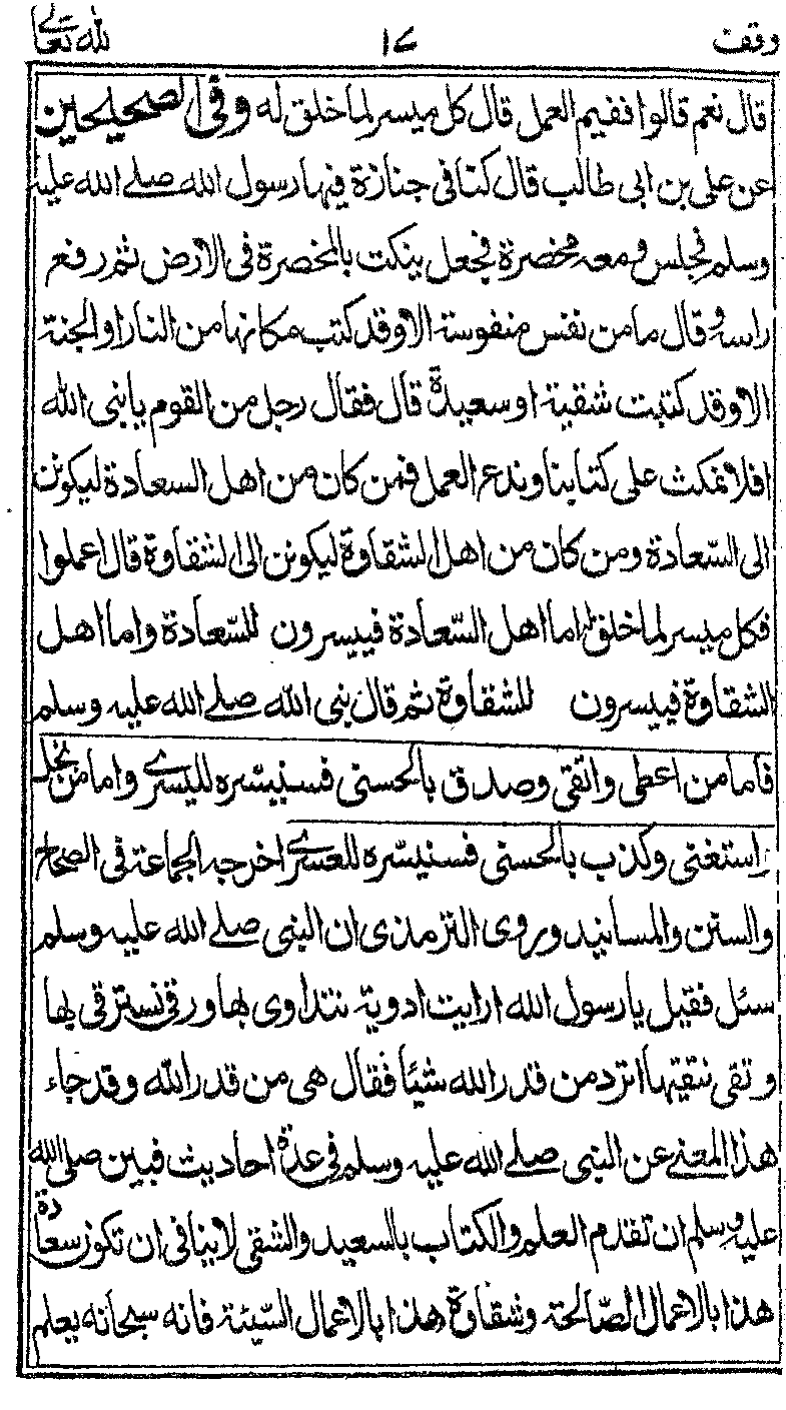 وقف ١٧ لله تعالى
قال نعم قالوا ففيم العمل قال كل ميسر لما خلق له وفى الصحيحين
عن على بن ابى طالب قال كنا فى جنازة فيها رسول الله صلے الله عليه
وسلم فجلس ومعه مخصرة فجعل ينكت بالمخصرة فى الارض ثم رفع
راسه وقال ما من نفس منفوسة الا وقد كتب مكانها من النار او الجنة
الا وقد كتبت شقية او سعيدة قال فقال رجل من القوم يا نبى الله
افلا نمكث على كتابنا وندع العمل فمن كان من اهل السعادة ليكونن
الى السّعادة ومن كان من اهل الشقاوة ليكونن الى الشقاوة قال اعملوا
فكل ميسر لما خلق له اما اهل السّعادة فييسرون للسّعادة واما اهل
الشقاوة فييسرون للشقاوة ثم قال نبى الله صلے الله عليه وسلم
فاما من اعطى واتقى وصدق بالحسنى فسنيسّره لليسرے واما من بخل
واستغنى وكذب بالحسنى فسنيسّره للعسرے اخرجه الجماعة فى الصحاح
والسنن والمسانيد وروى الترمذى ان النبى صلے الله عليه وسلم
سئل فقيل يا رسول الله ارايت ادوية نتداوى بها ورقى نسترقى بها
وتقى نتقيها اترد من قدر الله شيئا فقال هى من قدر الله وقد جاء
هذا المعنے عن النبى صلے الله عليه وسلم فى عدة احاديث فبين صلى الله
عليه وسلم ان تقدم العلم والكتاب بالسعيد والشقى لا ينافى ان تكون سعادة
هذا بالاعمال الصّالحة وشقاوة هذا بالاعمال السّيئة فانه سبحانه يعلم